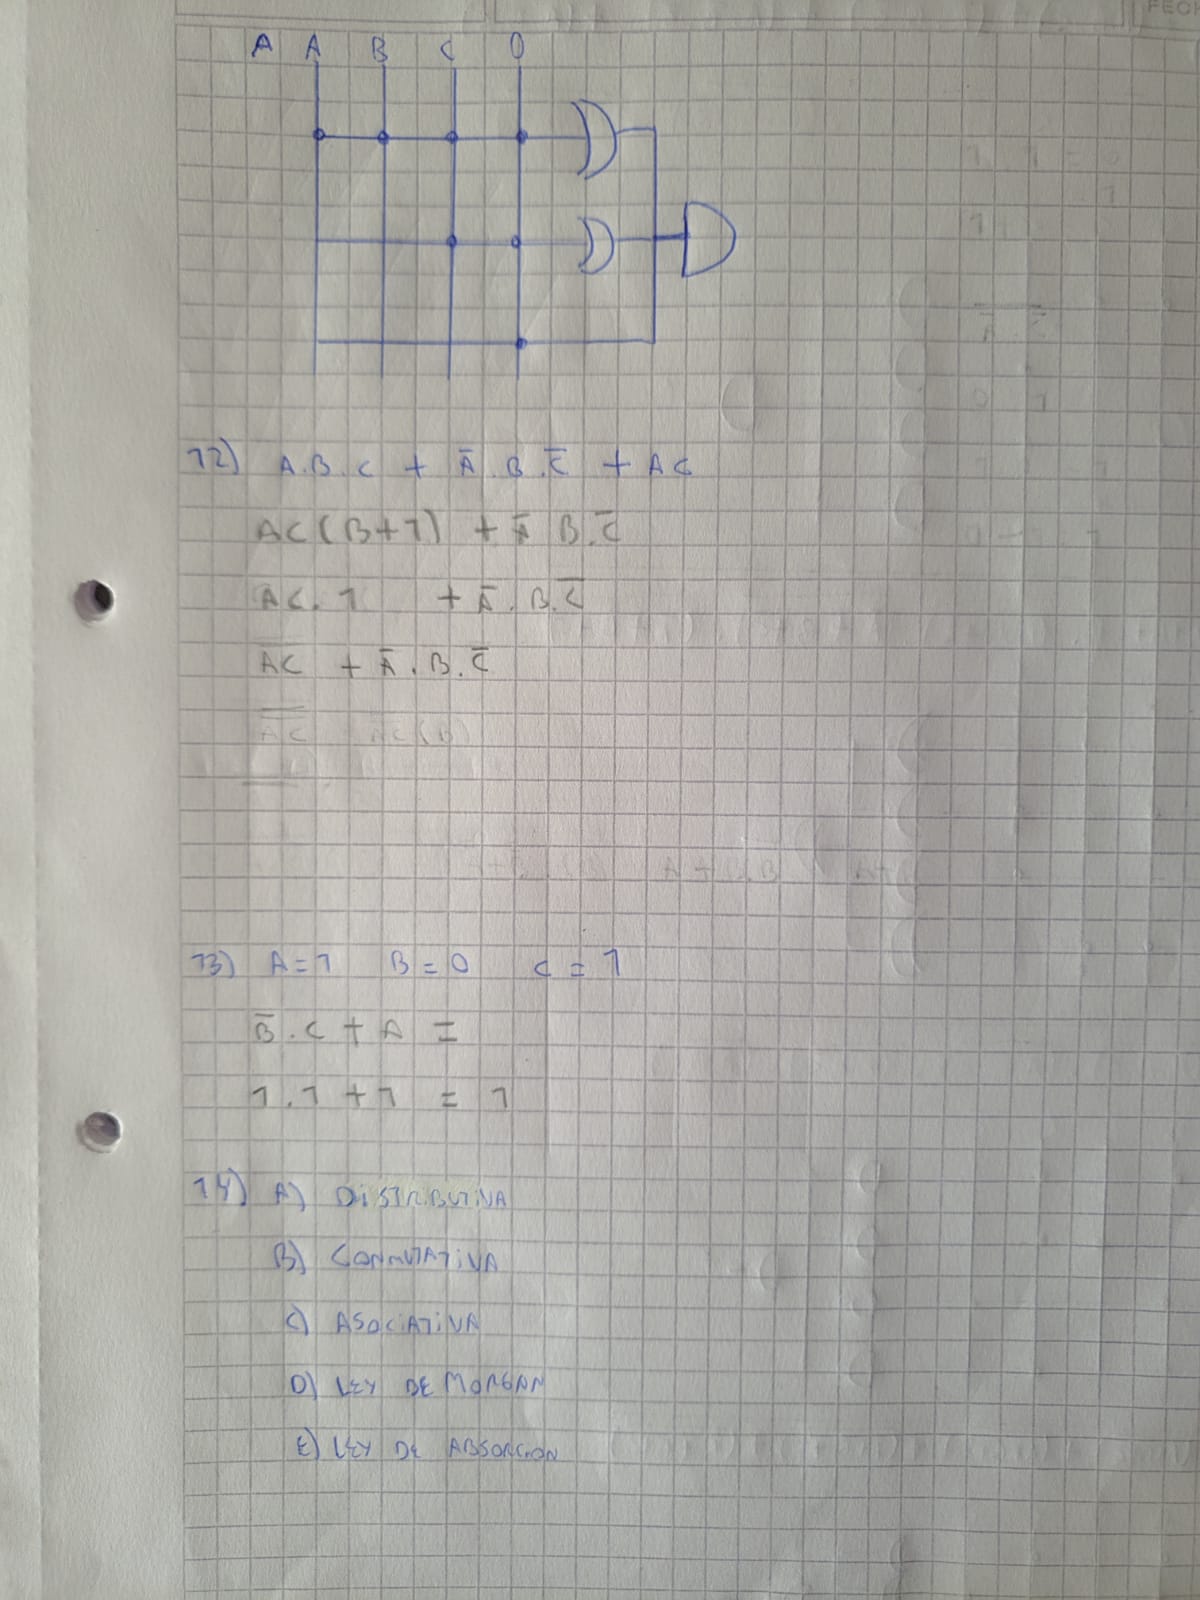 FEC
A A B C D
12) A.B.C + Ā.B.C̄ + AC
AC(B+1) + Ā B.C̄
AC.1 + Ā.B.C̄
A̅C̅ + Ā.B.C̄
13) A=1 B=0 C=1
B̄.C+A =
1.1+1 = 1
14) A) DISTRIBUTIVA
B) CONMUTATIVA
C) ASOCIATIVA
D) LEY DE MORGAN
E) LEY DE ABSORCION